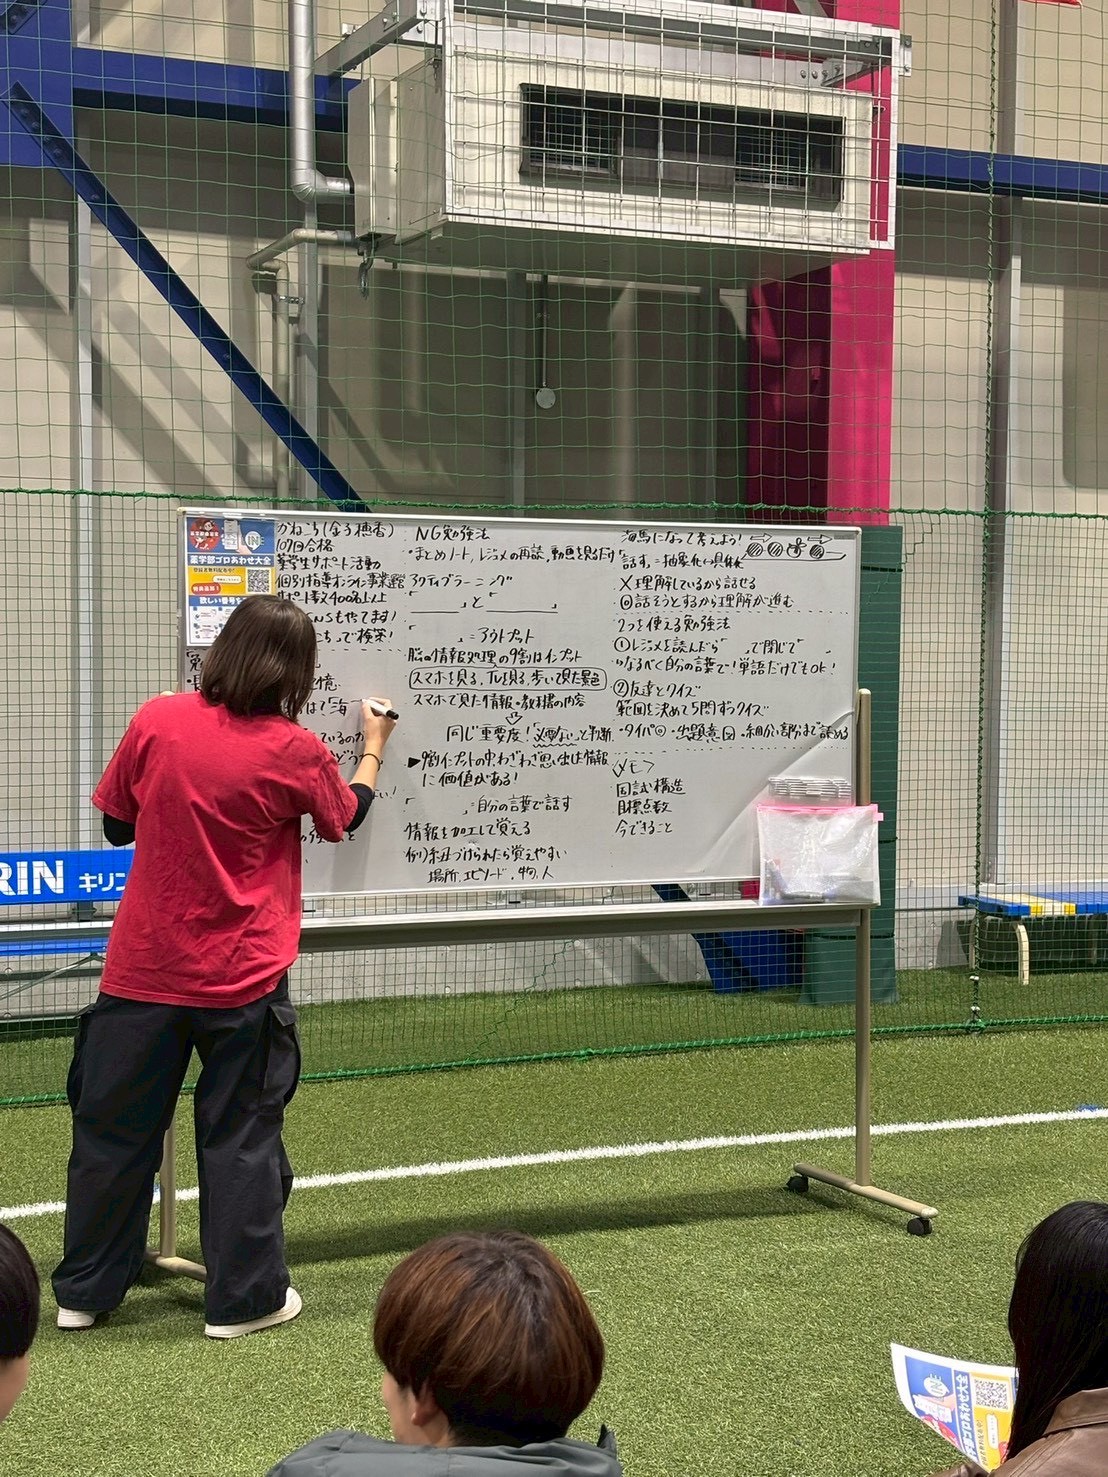 かねこち(金子穂香)
107回合格
薬学生サポート活動
個別指導オンライン事業運営
サポート数400名以上
SNSもやてます!
で検索!
薬学部ゴロあわせ大全
NG勉強法
・まとめノート,レジュメの再読,動画を見るだけ
アクティブラーニング
「　」と「　」
「　」=アウトプット
脳の情報処理の9割はインプット
スマホを見る,TVを見る,歩いて見た景色
スマホで見た情報・教科書の内容
同じ重要度!「必要ない」と判断
▶9割インプットの中,わざわざ思い出した情報
に価値がある!
「　」=自分の言葉で話す
情報を加工して覚える
例)紐づけられたら覚えやすい
場所,エピソード,物,人
海馬になって考えよう!
「話す」=抽象化⇔具体化
×理解しているから話せる
◎話そうとするから理解が進む
2つを使える勉強法
①レジュメを読んだら「　」で閉じて「　」
⇒なるべく自分の言葉で!単語だけでもOK!
②友達とクイズ
範囲を決めて5問ずつクイズ
・タイパ◎・出題意図・細かい部分まで詰める
<メモ>
国試の構造
目標点数
今できること
RIN キリン
薬学部ゴロあわせ大全